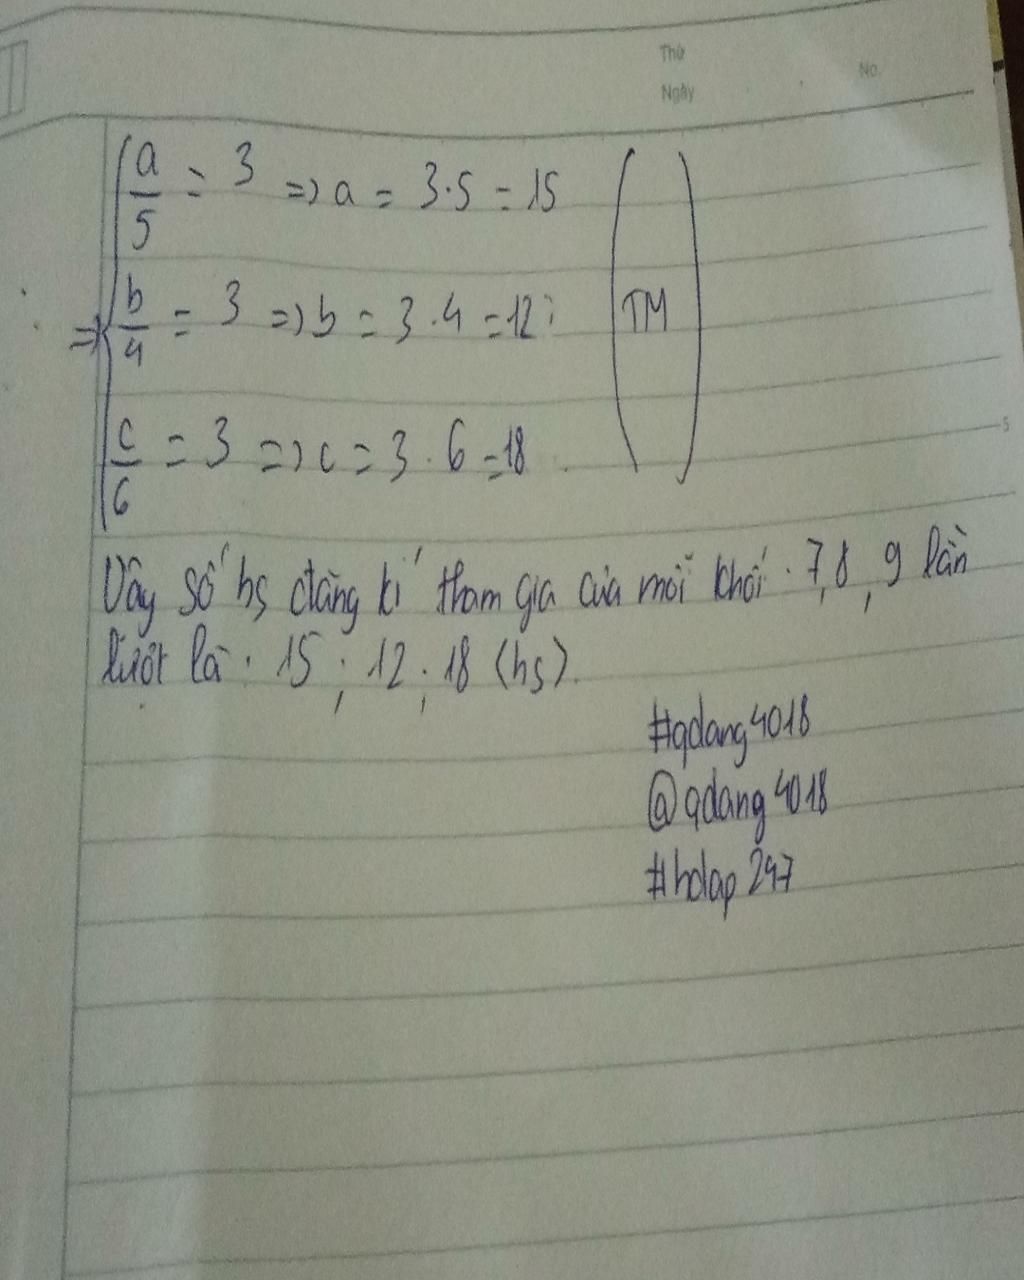 Thứ
Ngày
No.
a/5 = 3 => a = 3.5 = 15
=> b/4 = 3 => b = 3.4 = 12; (TM)
c/6 = 3 => c = 3.6 = 18.
5
Vậy số hs đăng kí tham gia của mỗi khối. 7, 8, 9 lần
lượt là: 15; 12; 18 (hs).
#qdang4018
@qdang4018
#hdap247